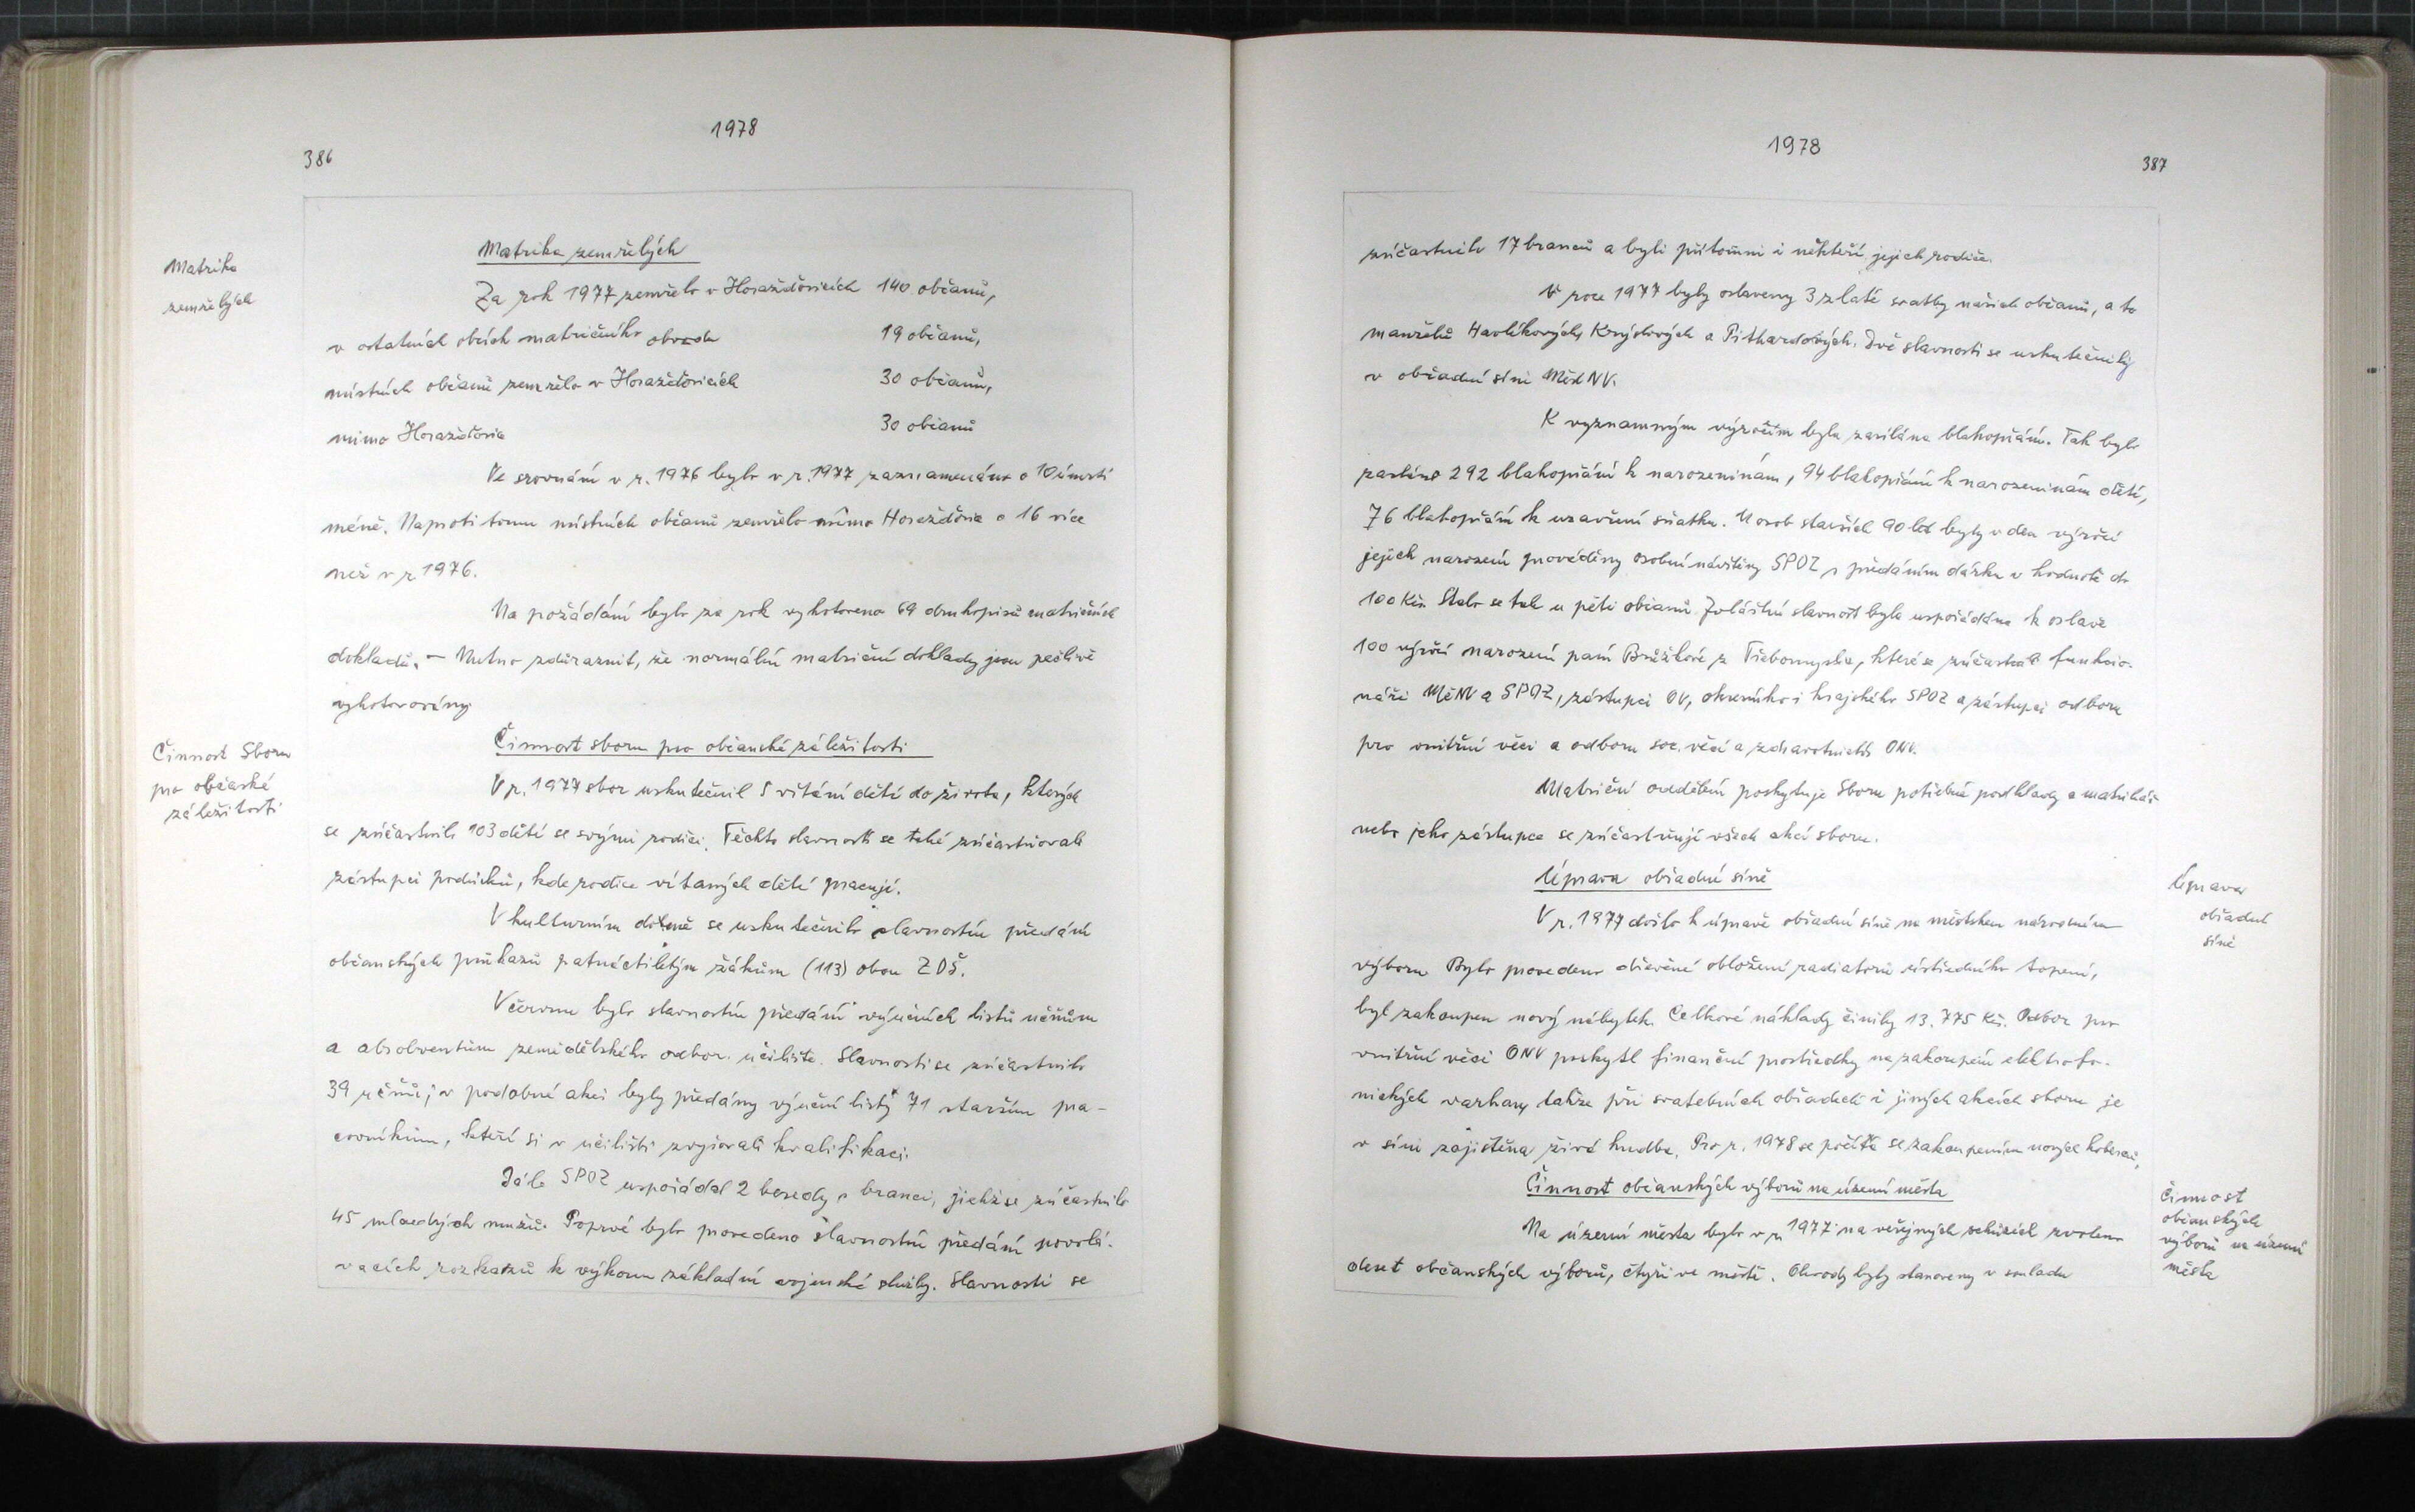 1978
386
Matrika
zemřelých
Matrika zemřelých
Za rok 1977 zemřelo v Horažďovicích 140 občanů,
v ostatních obcích matričního obvodu 19 občanů,
místních občanů zemřelo v Horažďovicích 30 občanů,
mimo Horažďovice 30 občanů
Ve srovnání v r. 1976 bylo v r. 1977 zaznamenáno o 10 úmrtí
méně. Naproti tomu místních občanů zemřelo mimo Horažďovice o 16 více
než v r 1976.
Na požádání bylo za rok vyhotoveno 69 druhopisů matričních
dokladů. – Nutno zdůraznit, že normální matriční doklady jsou pečlivě
vyhotovovány
Činnost Sboru
pro občanské
záležitosti
Činnost sboru pro občanské záležitosti
V r. 1977 sbor uskutečnil 5 vítání dětí do života, kterých
se zúčastnilo 103 dětí se svými rodiči. Těchto slavností se také zúčastňovali
zástupci podniků, kde rodiče vítaných dětí pracují.
V kulturním domě se uskutečnilo slavnostní předání
občanských průkazů patnáctiletým žákům (113) obou ZDŠ.
V červnu bylo slavnostní předání výučních listů učňům
a absolventům zemědělského odbor. učiliště. Slavnosti se zúčastnilo
39 učňů; v podobné akci byly předány výuční listy 71 starším pra-
covníkům, kteří si v učilišti zvyšovali kvalifikaci.
Dále SPOZ uspořádal 2 besedy s branci, jichž se zúčastnilo
45 mladých mužů. Poprvé bylo provedeno slavnostní předání povolá-
vacích rozkazů k výkonu základní vojenské služby. Slavnosti se
1978
387
zúčastnilo 17 branců a byli přítomni i někteří jejich rodiče.
V roce 1977 byly oslaveny 3 zlaté svatby našich občanů, a to
manželů Havlíkových, Krýslových a Pithardových. Dvě slavnosti se uskutečnily
v obřadní síni MěstNV.
K významným výročím byla zasílána blahopřání. Tak bylo
zasláno 292 blahopřání k narozeninám, 94 blahopřání k narozeninám dětí,
76 blahopřání k uzavření sňatku. U osob starších 90 let byly v den výročí
jejich narození prováděny osobní návštěvy SPOZ s předáním dárku v hodnotě do
100 Kčs. Stalo se tak u pěti občanů. Zvláštní slavnost byla uspořádána k oslavě
100 výročí narození paní Brůžkové z Třebomyslic, které se zúčastnili funkcio-
náři MěNV a SPOZ, zástupci OV, okresního i krajského SPOZ a zástupci odboru
pro vnitřní věci a odboru soc. věcí a zdravotnictví ONV.
Matriční oddělení poskytuje Sboru potřebné podklady a matrikář
nebo jeho zástupce se zúčastňují všech akcí sboru.
Úprava obřadní síně
Úprava
obřadní
síně
V r. 1977 došlo k úpravě obřadní síně na městském národním
výboru Bylo provedeno dřevěné obložení radiatorů ústředního topení,
byl zakoupen nový nábytek. Celkové náklady činily 13.775 Kčs. Odbor pro
vnitřní věci ONV poskytl finanční prostředky na zakoupení elektrofo-
nických varhan, takže při svatebních obřadech i jiných akcích sboru je
v síni zajištěna živá hudba. Pro r. 1978 se počítá se zakoupením nových koberců,
Činnost občanských výborů na území města
činnost
občanských
výborů na území
města
Na území města bylo v r. 1977 na veřejných schůzích zvoleno
deset občanských výborů, čtyři ve městě. Obvody byly stanoveny v souladu